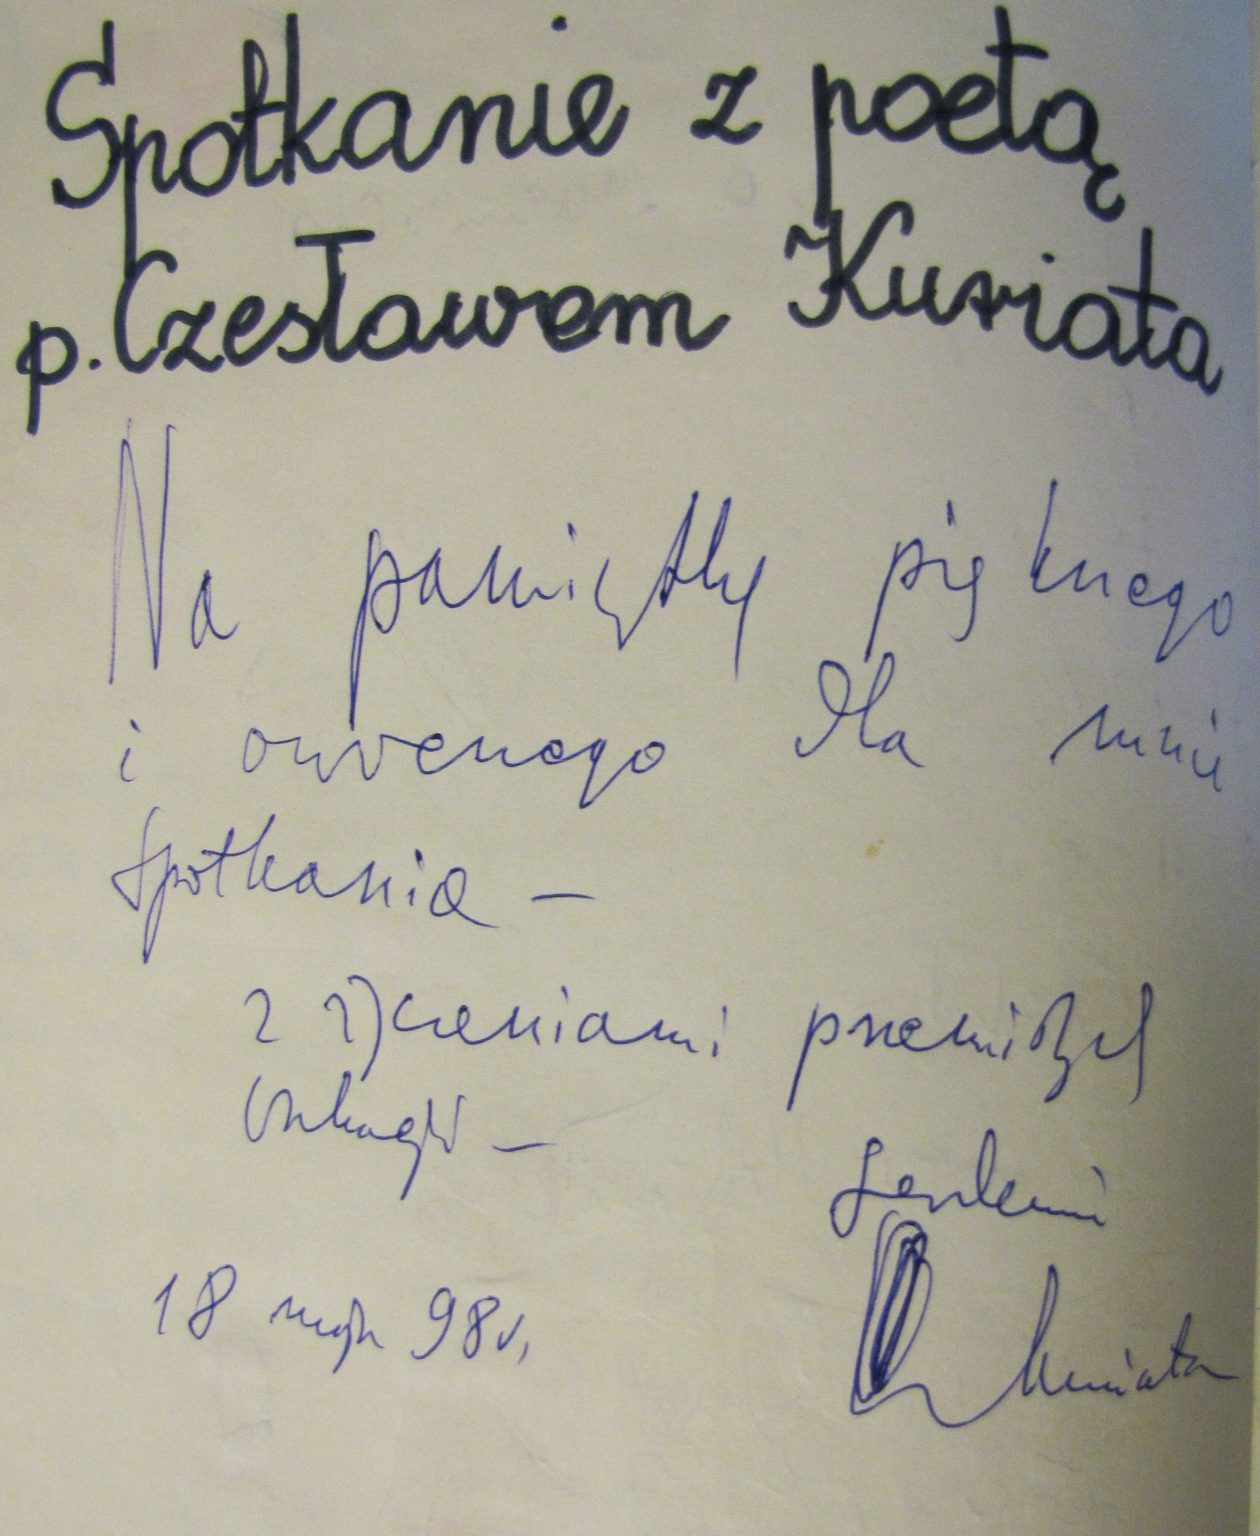 Spotkanie z poetą
p. Czesławem Kuriata
Na pamiątkę pięknego
i owocnego dla mnie
spotkania —
z życzeniami
—
serdecznie
18 maja 98 r.
Kuriata